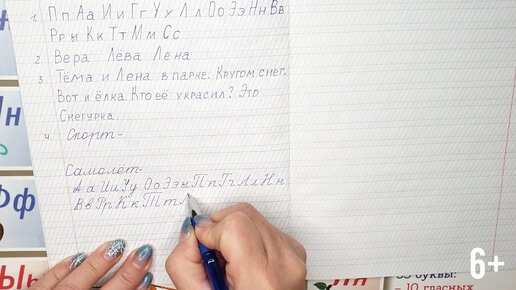 1 Пп Аа Ии Гг Ух Лл Оо Ээ Нн Вв
Рр ы Кк Тт Мм Сс
2 Вера Лёва Лена
3 Тёма и Лена в парке. Кругом снег.
Вот и ёлка. Кто её украсил? Это
Снегурка.
4. Спорт-
Самолёт-
Аа Ии Уу Оо Ээ ы Пп Гг Лл Нн
Вв Рр Кк Тт
Ин
Фф
Ын
33 буквы:
– 10 гласных
6+